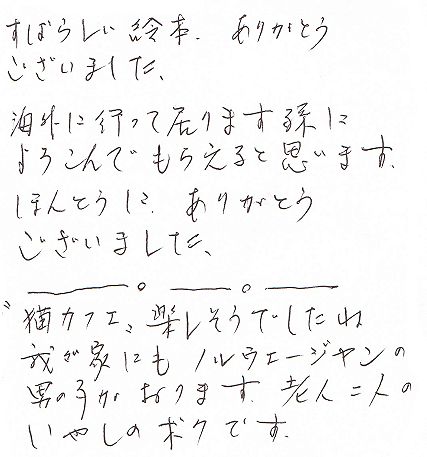 すばらしい絵本、ありがとう
ございました、
海外に行って居ります孫に
よろこんでもらえると思います、
ほんとうに、ありがとう
ございました、
〝猫カフェ〟楽しそうでしたね
我が家にもノルウェージャンの
男の子がおります、老人二人の
いやしのボクです、